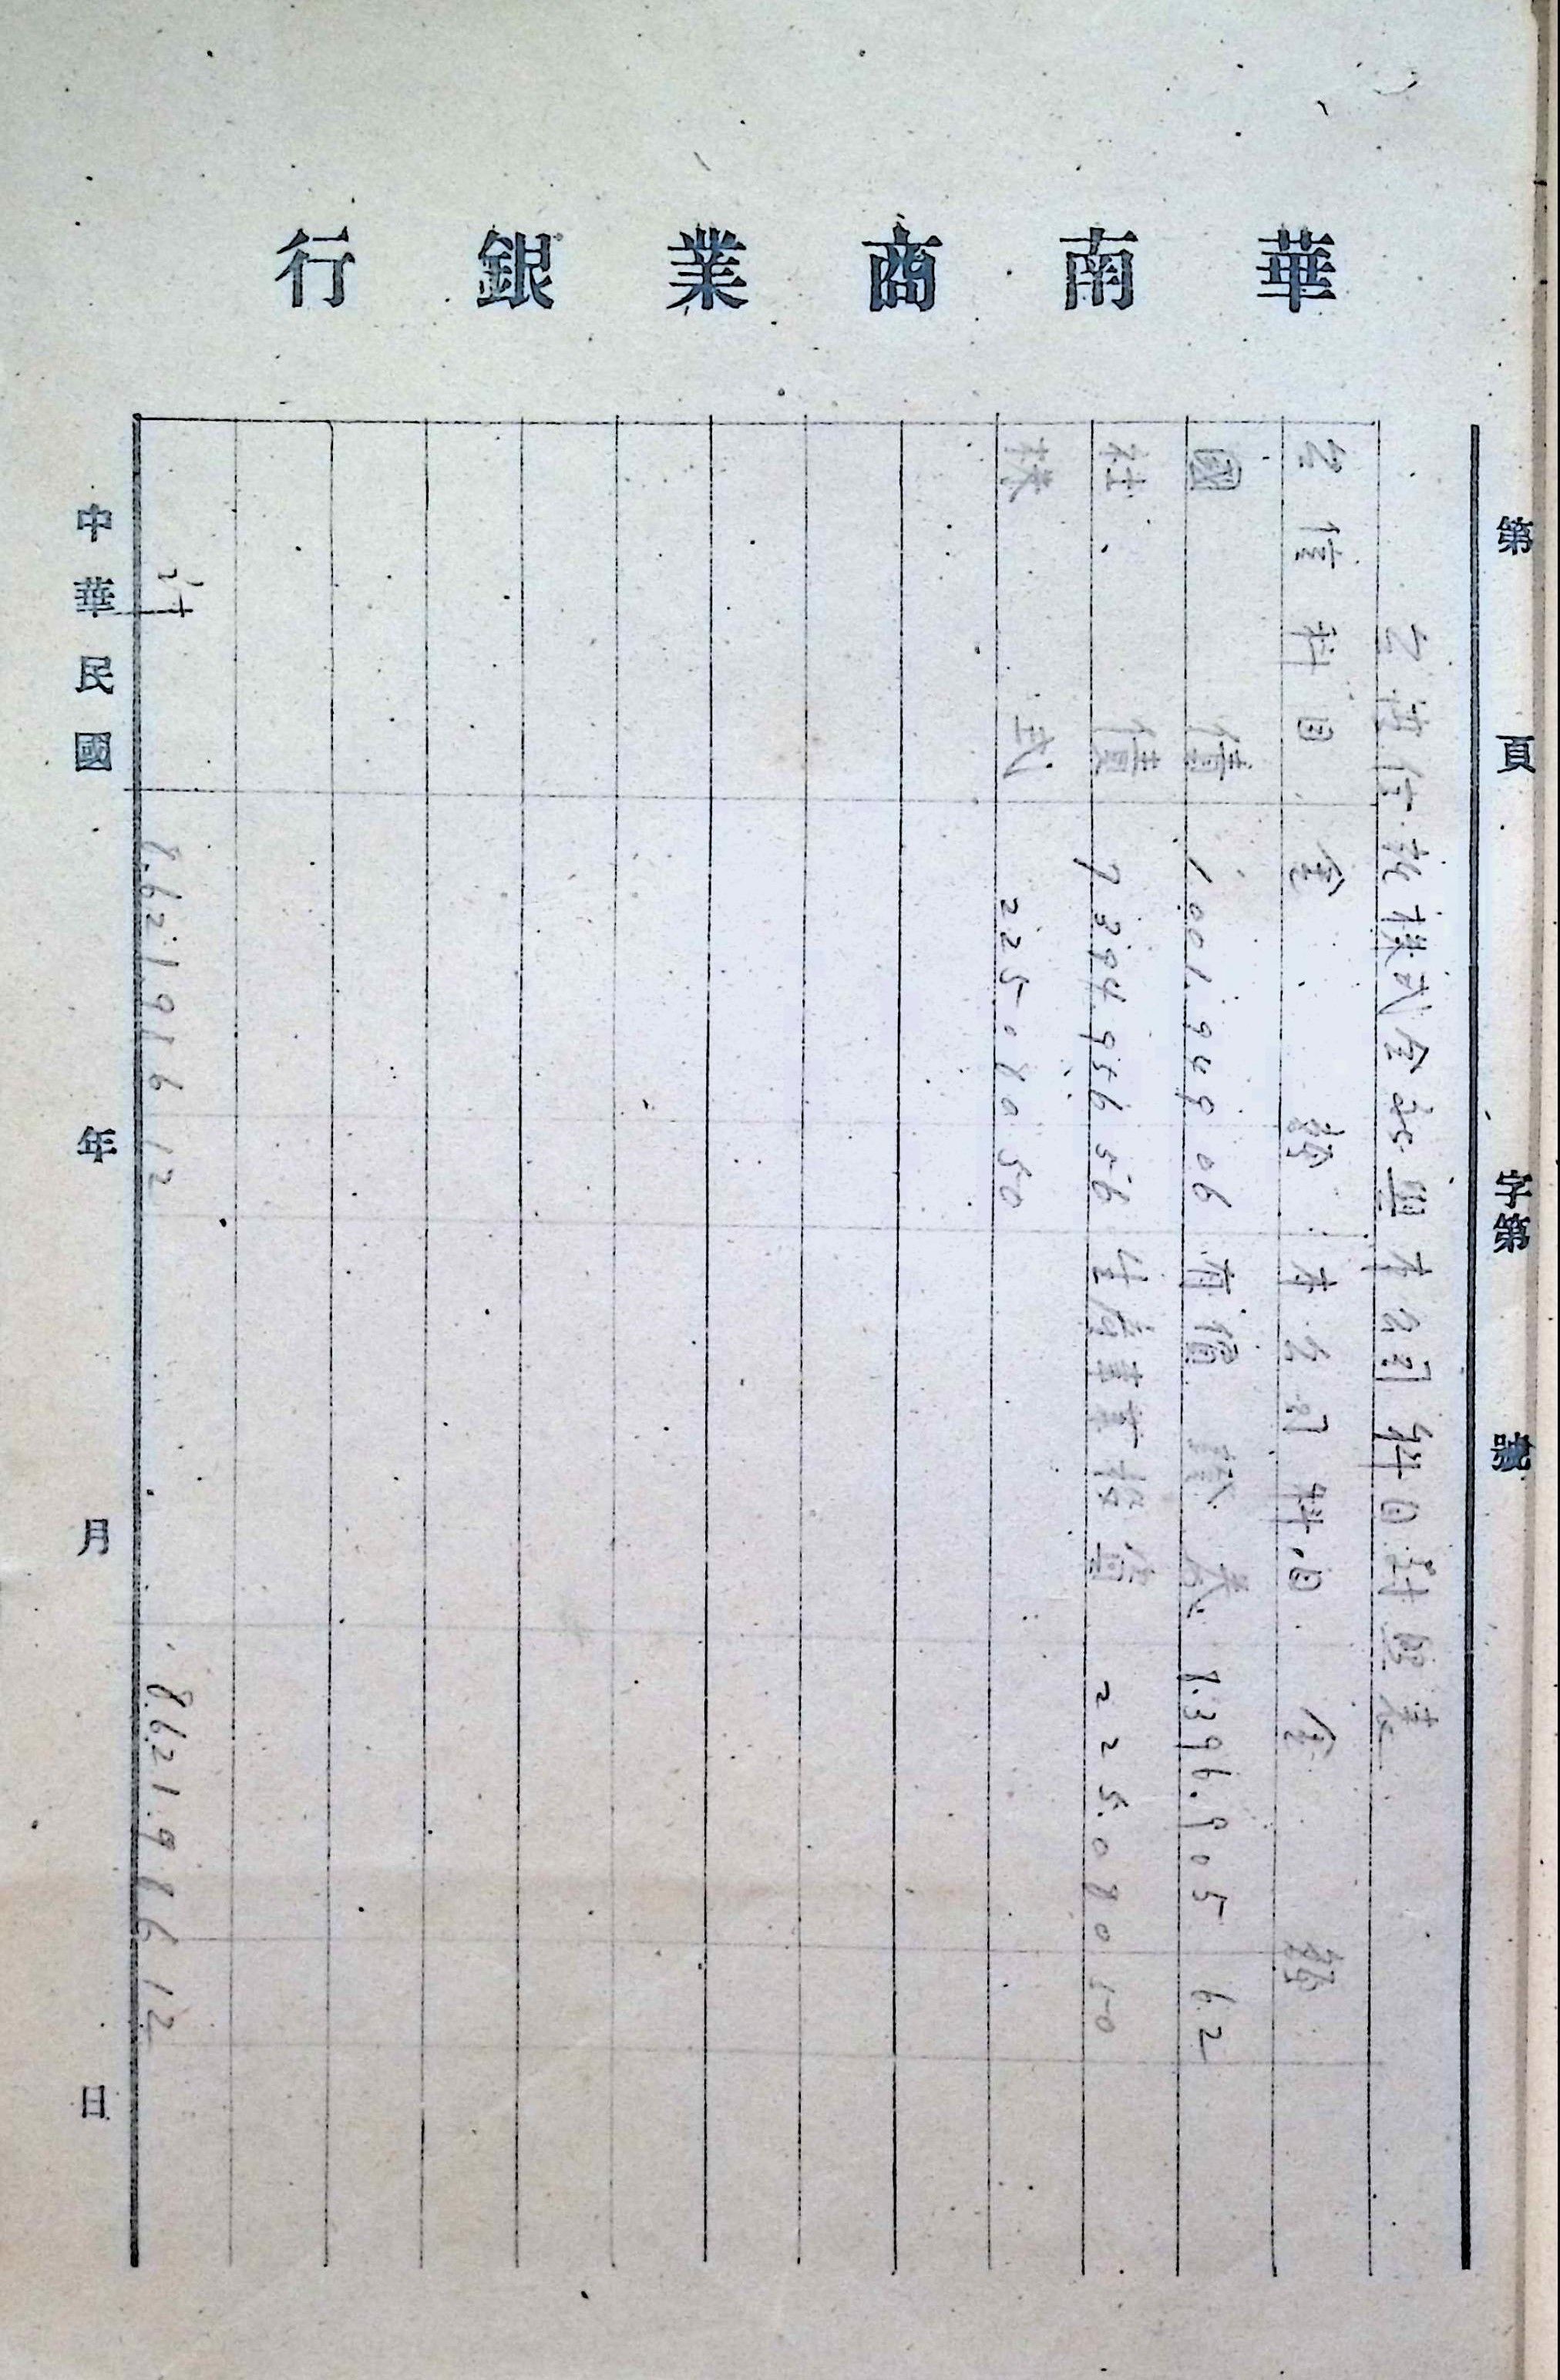 華南商業銀行
第 頁 字第 號
台湾信託株式会社與本公司科目対照表
台信科目 金 額 本公司科目 金 額
國 債 1.001.949 06 有價証券 8.396.905 62
社 債 7.394.956 56 生產事業投資 225.080 50
株 式 225.080 50
計 8.621.986 12 8.621.986 12
中華民國 年 月 日